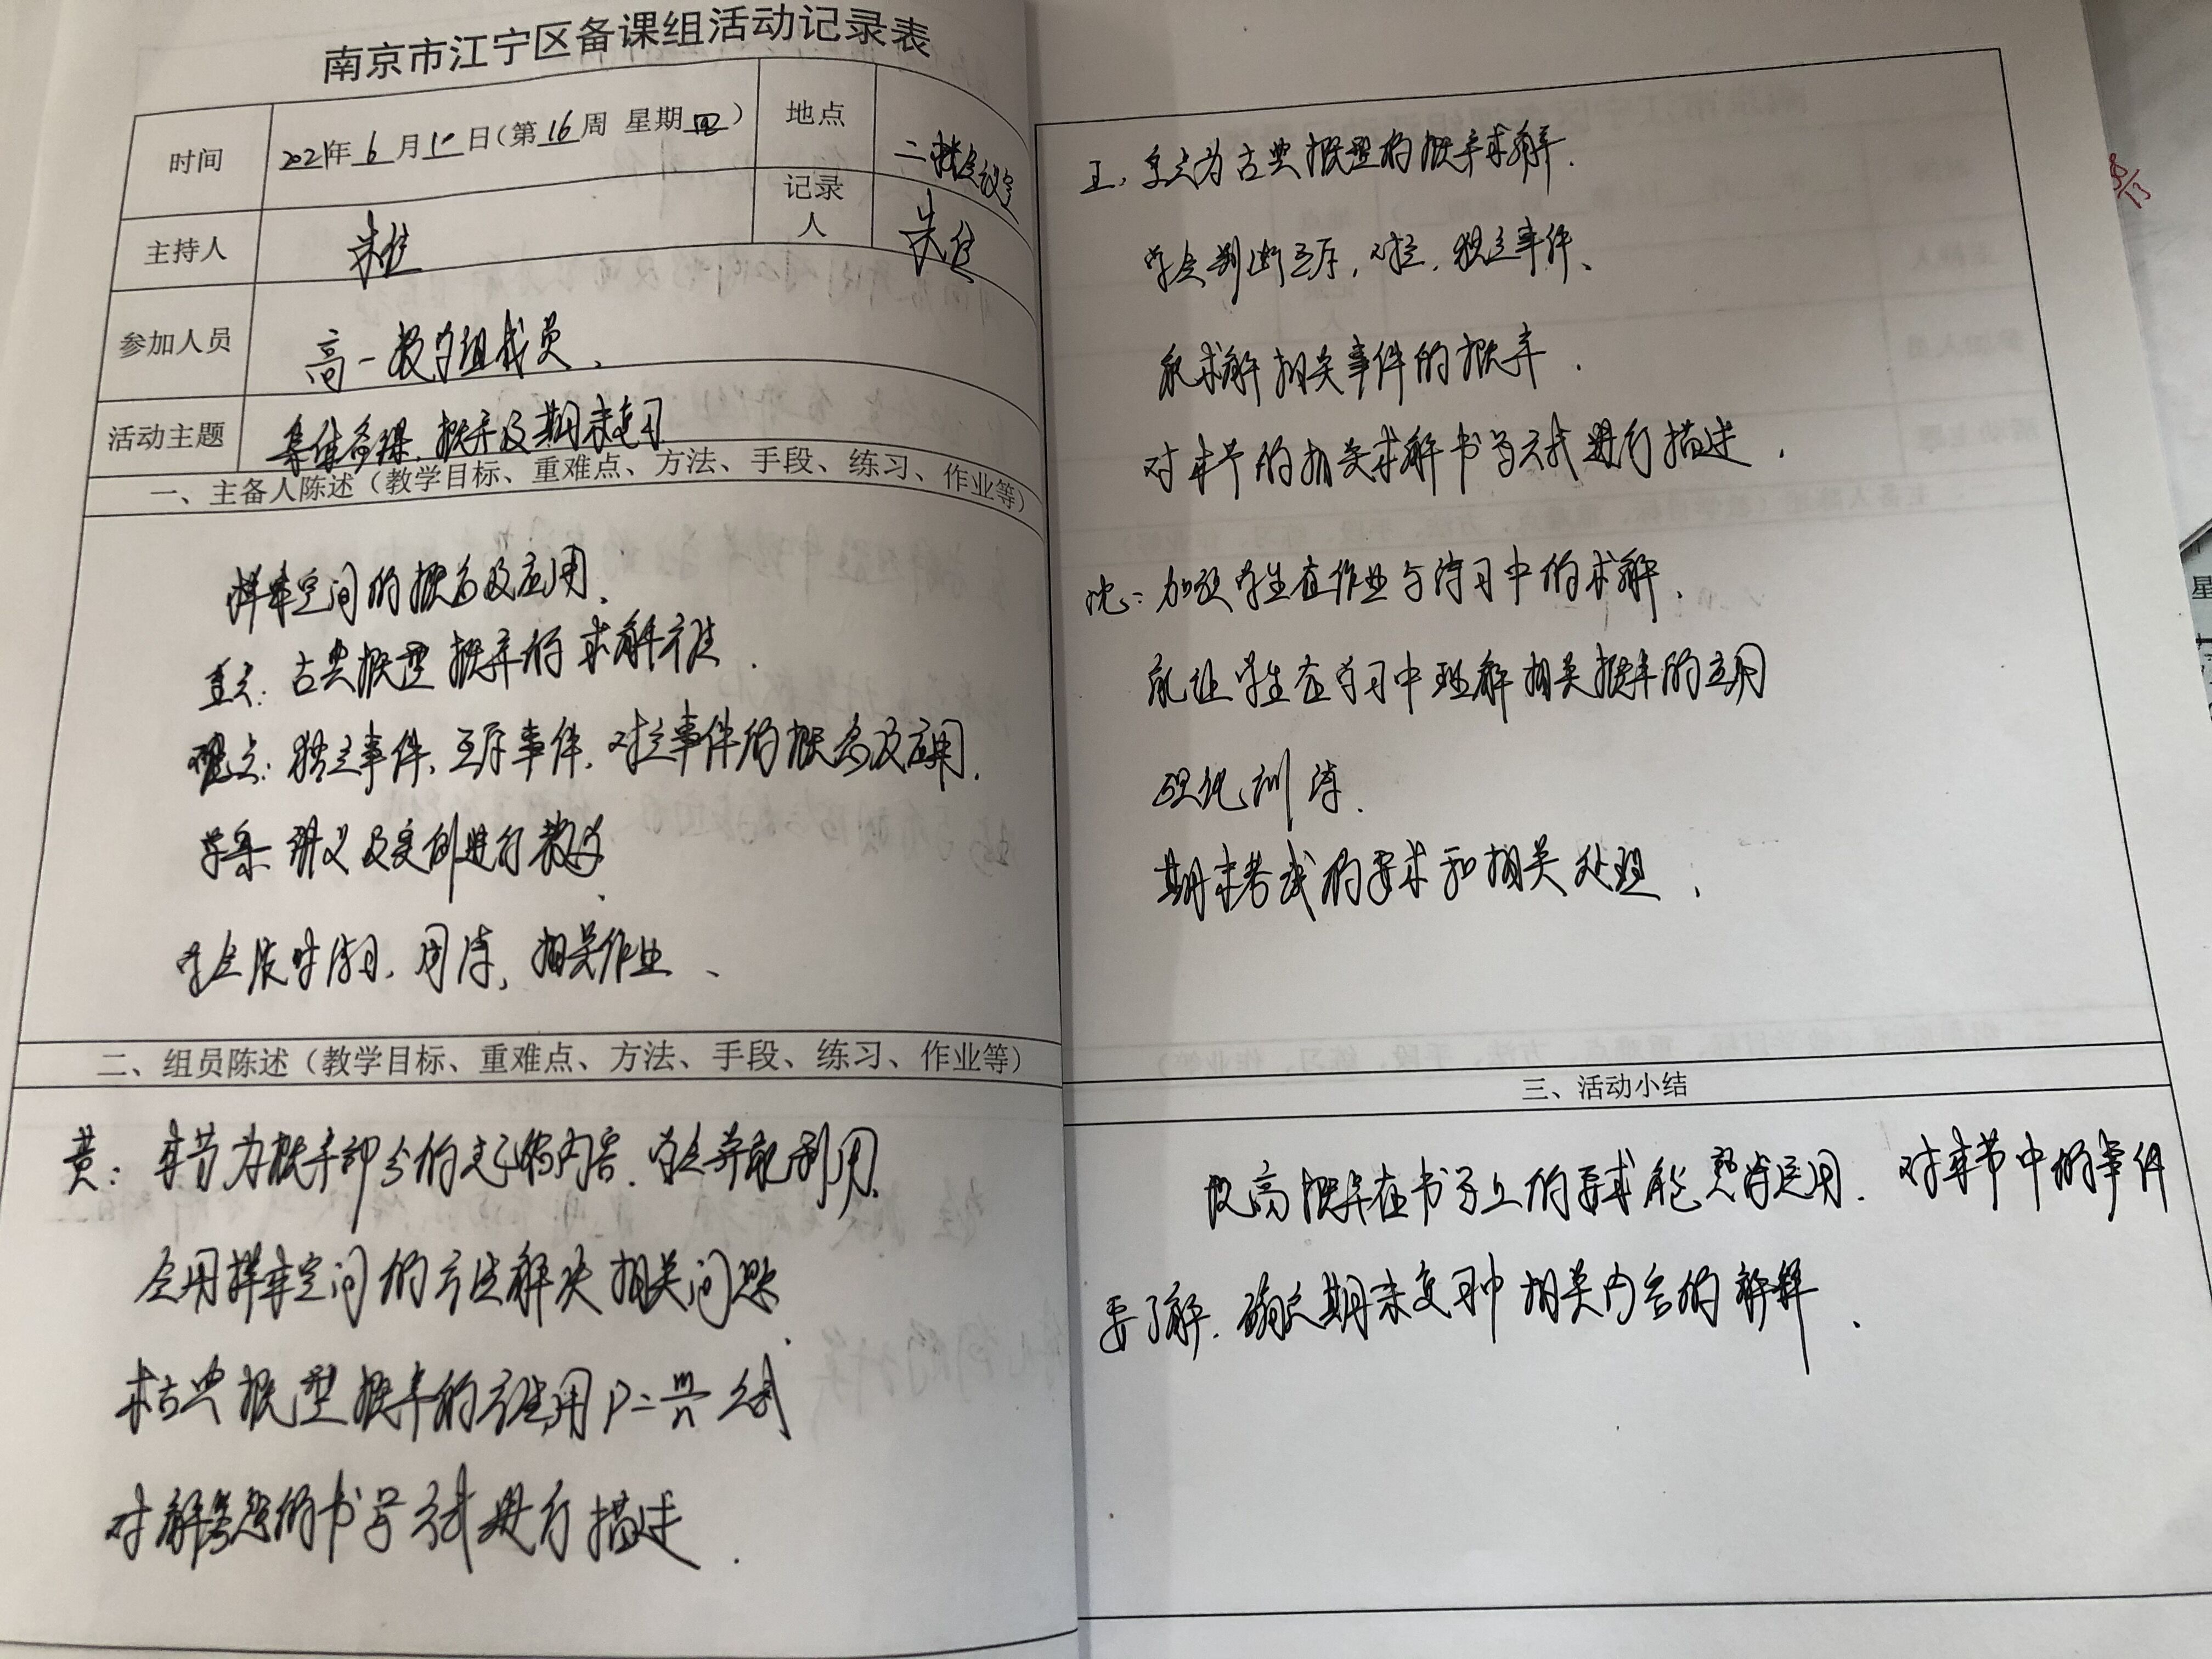 南京市江宁区备课组活动记录表
时间 2021年6月10日(第16周 星期四) 地点 二楼会议室
主持人 朱佳 记录人 朱佳
参加人员 高一数学组成员、
活动主题 集体备课、概率及期末复习
一、主备人陈述(教学目标、重难点、方法、手段、练习、作业等)
样本空间的概念及应用、
重点:古典概型概率的求解方法.
难点:独立事件、互斥事件、对立事件的概念及应用.
学案 讲义及实例进行教学、
学会限时练习、周练,相关作业、
二、组员陈述(教学目标、重难点、方法、手段、练习、作业等)
黄:本节为概率部分的内容.学会并能利用.
会用样本空间的方法解决相关问题、
求古典概型概率的方法用P=m/n公式
对解答题的书写方式进行描述.
王:重点为古典概型的概率求解.
学会判断互斥,对立,独立事件、
能求解相关事件的概率.
对本节的相关求解书写方式进行描述.
沈:加强学生在作业与练习中的求解.
能让学生在学习中理解相关概率的应用
强化训练.
期末考试的要求和相关处理、
三、活动小结
提高概率在书写上的要求能熟悉运用.对本节中的事件
要了解.确定期末复习中相关内容的解释、